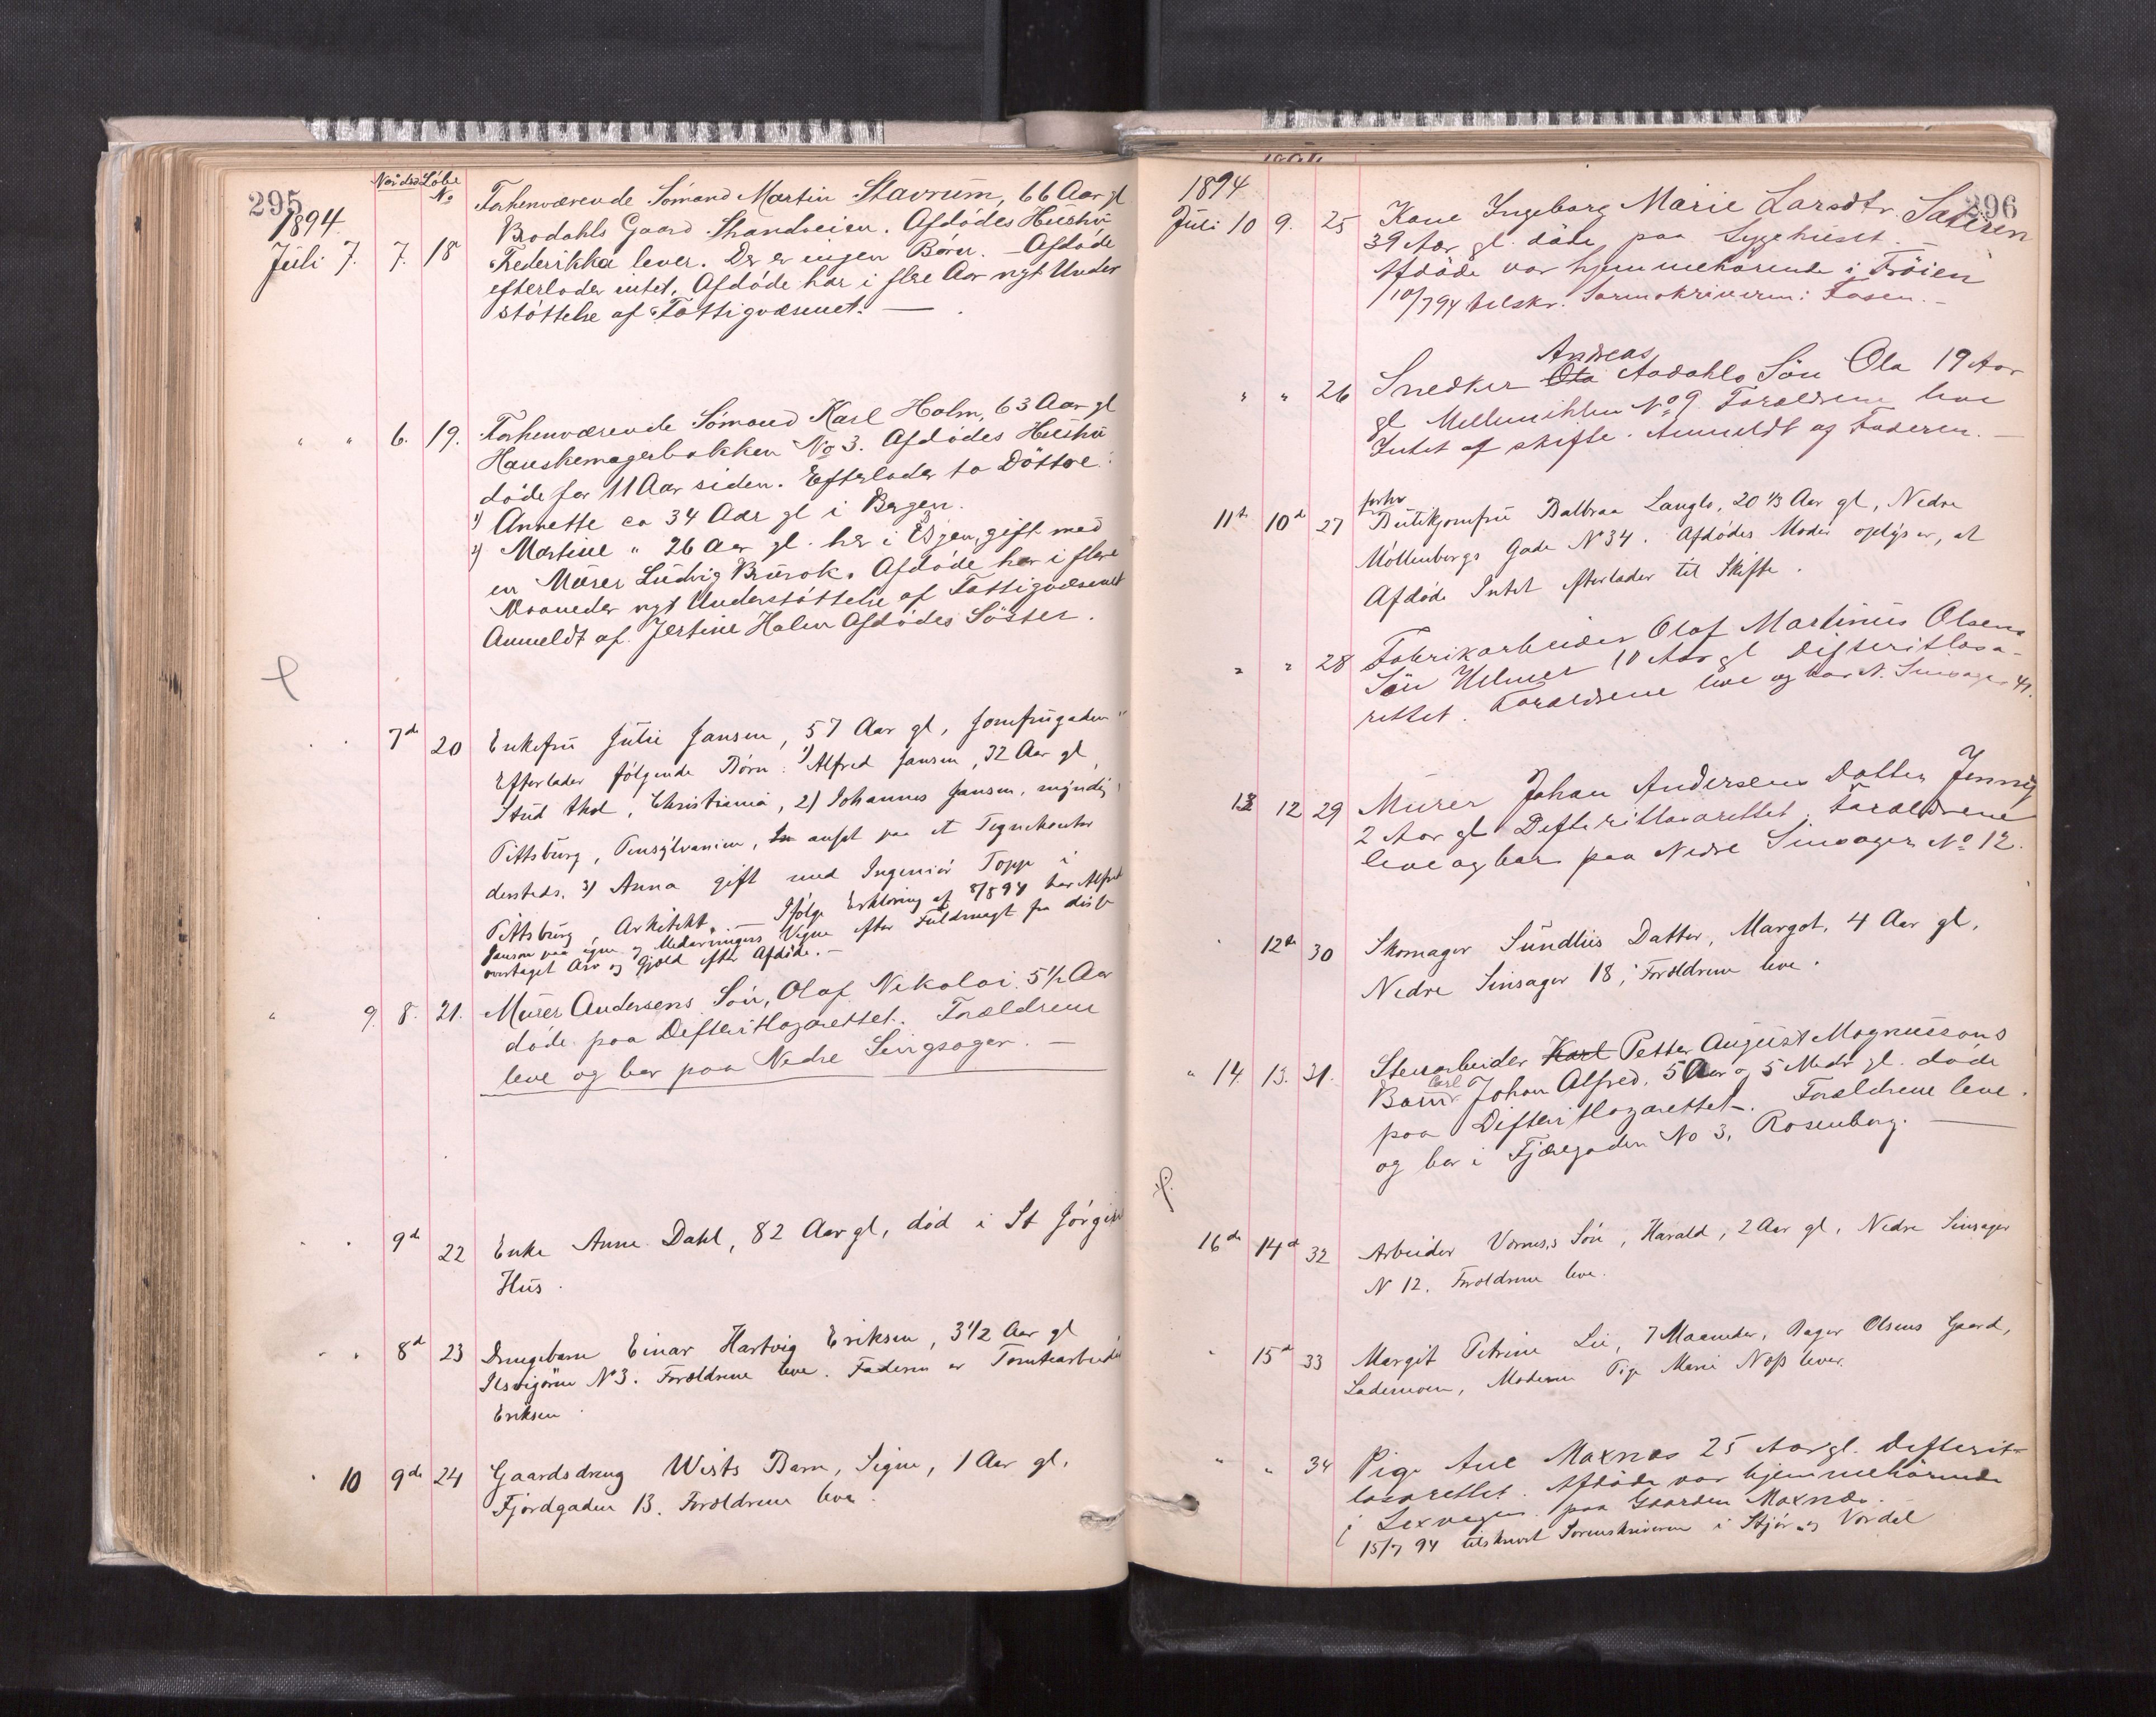 295
1894
Når død Löbe
No
Juli 7. 7. 18 Forhenværende Sömand Martin Stavrum, 66 Aar gl
Brodahls Gaard Strandveien. Afdödes Hustru
Frederikka lever. Der er ingen Börn. – Afdöde
efterlader intet. Afdöde har i flere Aar nydt Under
stöttelse af Fattigvæsenet. —
" " 6. 19. Forhenværende Sömand Karl Holm, 63 Aar gl
Hanskemagerbakken No 3. Afdödes Hustru
döde for 11 Aar siden. Efterlader to Döttre:
1) Annette ca 34 Aar gl i Bergen.
2) Martine " 26 Aar gl. her i Byen, gift med
en Murer Ludvig . Afdöde har i flere
Maaneder nydt Understöttelse af Fattigvæsenet
Anmeldt af Holm Afdödes Söster.
" " 7de 20 Enkefru Julie Jansen, 57 Aar gl, Jomfrugaden
Efterlader fölgende Börn: 1) Alfred Jansen, 32 Aar gl,
Stud theol, Christiania, 2) Johannes Jansen, myndig
Pittsburg, Pensylvanien, ansat paa et Tegnekontor
dersteds. 3) Anna gift med Ingeniör Topp i
Pittsburg, Arkitekt. — Ifölge Erklæring af 8/8 94 har Alfred
Jansen paa egne og Medarvingers Vegne efter Fuldmagt fra disse
overtaget Arv og Gjæld efter Afdöde. —
" 9. 8. 21. Murer Andersens Sön, Olaf Nikolai 5 1/2 Aar
döde paa Difteritlazarettet. Forældrene
leve og bor paa Nedre Singsager. —
" " 9de 22 Enke Anne Dahl, 82 Aar gl, död i St Jörgens
Hus.
" " 8de 23 Drengebarn Einar Hartvig Eriksen, 3 1/2 Aar gl
Ilsvigören No 3. Forældrene leve. Faderen er Tomtearbeider
Eriksen
" 10 9de 24 Gaardsdreng Wists Barn, Signe, 1 Aar gl,
Fjordgaden 13. Forældrene leve.
296
1894
Juli 10 9. 25 Kone Ingeborg Marie Larsdtr. Sæteren
39 Aar gl. döde paa Sygehuset. —
Afdöde var hjemmehörende i Fröien
10/7 94 tilskr. Sorenskriveren i Fosen. —
" " 26 Snedker Ola Andreas Aadahls Sön Ola 19 Aar
gl Mellemihlen No 9 Forældrene leve
Intet af skifte. Anmeldt af Faderen. —
11te 10de 27 forhv Butikjomfru Dalbraa Langlo, 20 1/3 Aar gl, Nedre
Möllenbergs Gade No 34. Afdödes Moder oplyser, at
Afdöde Intet efterlader til Skifte.
" " 28 Fabrikarbeider Olaf Martinus Olsens
Sön Helmer 10 Aar gl Difteritlasa-
rettet. Forældrene leve og bor N. Sinsager 41.
13 12 29 Murer Johan Andersens Datter Jenny
2 Aar gl Difteritlasarettet. Forældrene
leve og bor paa Nedre Sinsager No 12.
" 12te 30 Skomager Sundlius Datter, Margot, 4 Aar gl,
Nedre Sinsager 18, Forældrene leve.
" 14. 13. 31. Stenarbeider Karl Petter August Magnussons
Barn Carl Johan Alfred, 5 Aar og 5 Mdr gl. döde
paa Difteritlazarettet. Forældrene leve.
og bor i Fjæregaden No 3, Rosenborg. —
16de 14de 32 Arbeider Værnes's Sön, Harald, 2 Aar gl, Nedre Sinsager
N 12. Forældrene leve.
" 15de 33 Margit Petrine Lie, 7 Maaneder, Bager Olsens Gaard,
Lademoen, Moderen Pige Marie Noss lever.
" " 34 Pige Ane Moxnes 25 Aar gl. Difterit-
lasarettet. Afdöde var hjemmehörende
i Lexvigen paa Gaarden Moxnes.
15/7 94 tilskrevet Sorenskriveren i Stjör og Værdal